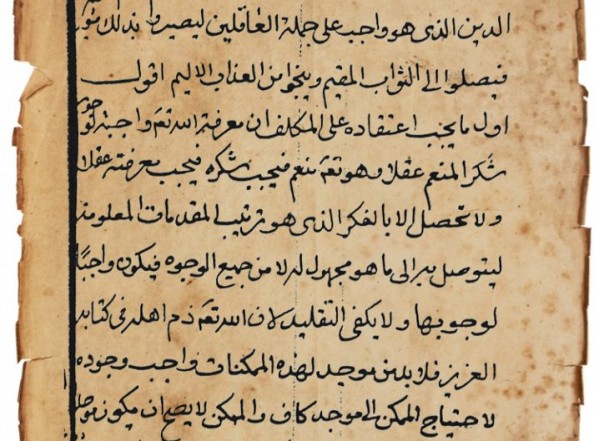 الدين الذى هو واجب على جملة العاقلين ليصيروا بذلك
فيصلوا الى الثواب المقيم وينجوا من العذاب الاليم اقول
اول ما يجب اعتقاده على المكلف ان معرفة الله تعم واجبة لوجوب
شكر المنعم عقلا وهو تعم منعم فيجب شكره فيجب معرفته عقلا
ولا تحصل الا بالفكر الذى هو ترتيب المقدمات المعلومة
ليتوصل بها الى ما هو مجهول له لا من جميع الوجوه فيكون واجبًا
لوجوبها ولا يكفى التقليد لان الله تعم ذم اهله فى كتابه
العزيز فلا بد من موجد لهذه الممكنات واجب وجوده
لاحتياج الممكن الى موجد كاف والممكن لا يصح ان يكون